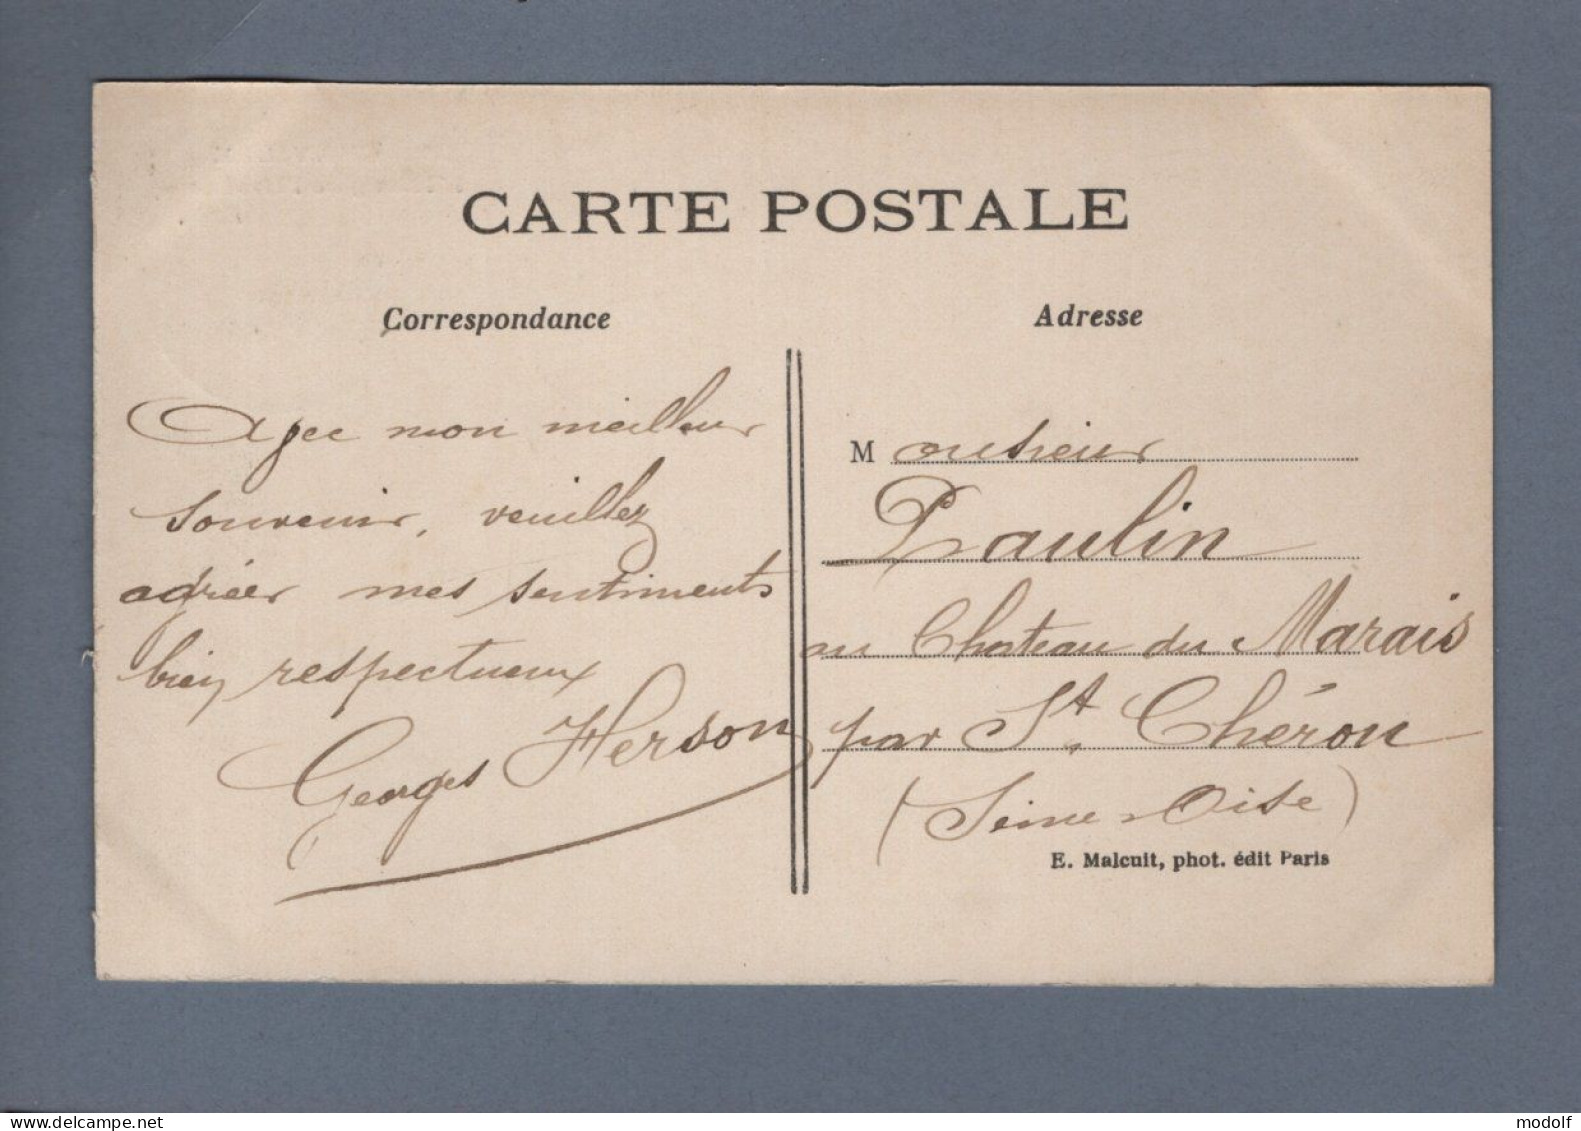 CARTE POSTALE
Correspondance
Avec mon meilleur
souvenir, veuillez
agréer mes sentiments
bien respectueux
Georges Herson
Adresse
Monsieur
Paulin
au Chateau du Marais
par St. Chéron
(Seine & Oise)
E. Malcuit, phot. édit Paris
www.delcampe.net
modolf